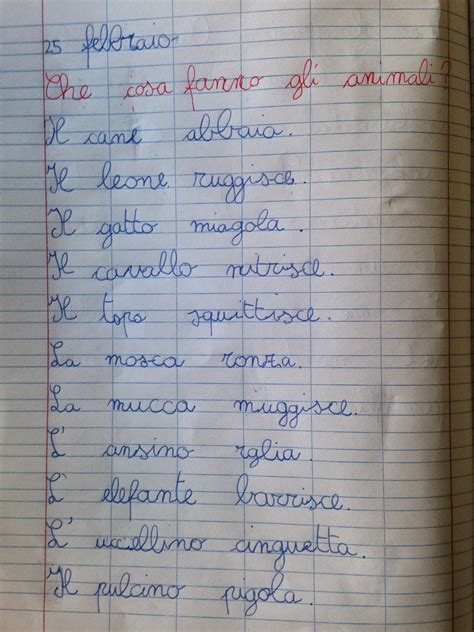 25 febbraio
Che cosa fanno gli animali?
Il cane abbaia.
Il leone ruggisce.
Il gatto miagola.
Il cavallo nitrisce.
Il topo squittisce.
La mosca ronza.
La mucca muggisce.
L' ansino rglia.
L' elefante barrisce.
L' uccellino cinguetta.
Il pulcino pigola.